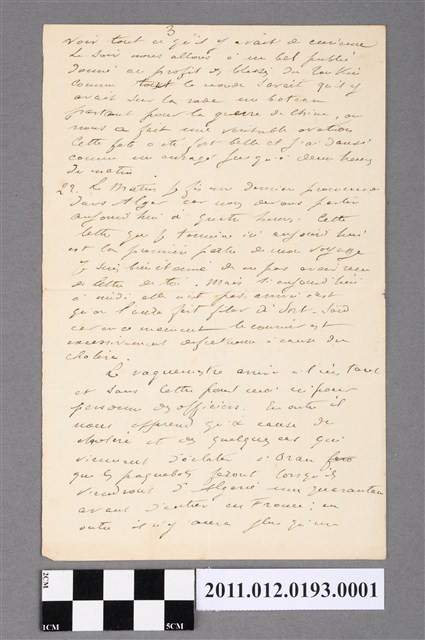 3
voir tout ce qu'il y avait de curieux
Le soir nous allons à un bal public
donné au profit des blessés du Tonkin
comme tout le monde savait qu'il y
avait sur la rade un bateau
partant pour la guerre de Chine, on
nous a fait une véritable ovation
Cette fête a été fort belle et j'ai dansé
comme un enragé jusqu'à deux heures
du matin.
29. Le Matin je fis une dernière promenade
dans Alger car nous devons partir
aujourd'hui à quatre heures. Cette
lettre que je termine ici aujourd'hui
est la première partie de mon voyage
Je suis bien étonné de ne pas avoir reçu
de lettre de toi. Mais si aujourd'hui
à midi elle n'est pas arrivée c'est
qu'on l'aura fait filer à Port-Saïd
car en ce moment le courrier est
excessivement défectueux à cause du
choléra.
Le vaguemestre arrive à l'instant
et sans lettre pour moi ni pour
personne des officiers. En outre il
nous apprend qu'à cause du
choléra et des quelques cas qui
viennent d'éclater à Oran
que les paquebots feront lorsqu'ils
viendront d'Algérie une quarantaine
avant d'entrer en France; en
outre il n'y aura plus qu'une
2CM
1CM
5CM
2011.012.0193.0001